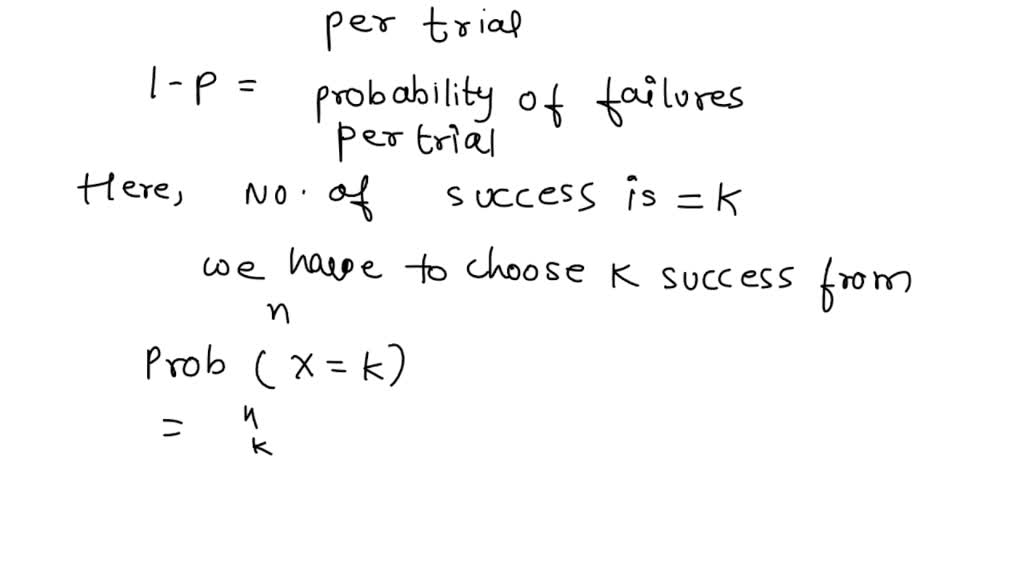 per trial
1-p = probability of failures
per trial
Here, No. of success is = k
we have to choose k success from
n
Prob (x = k)
= n
k